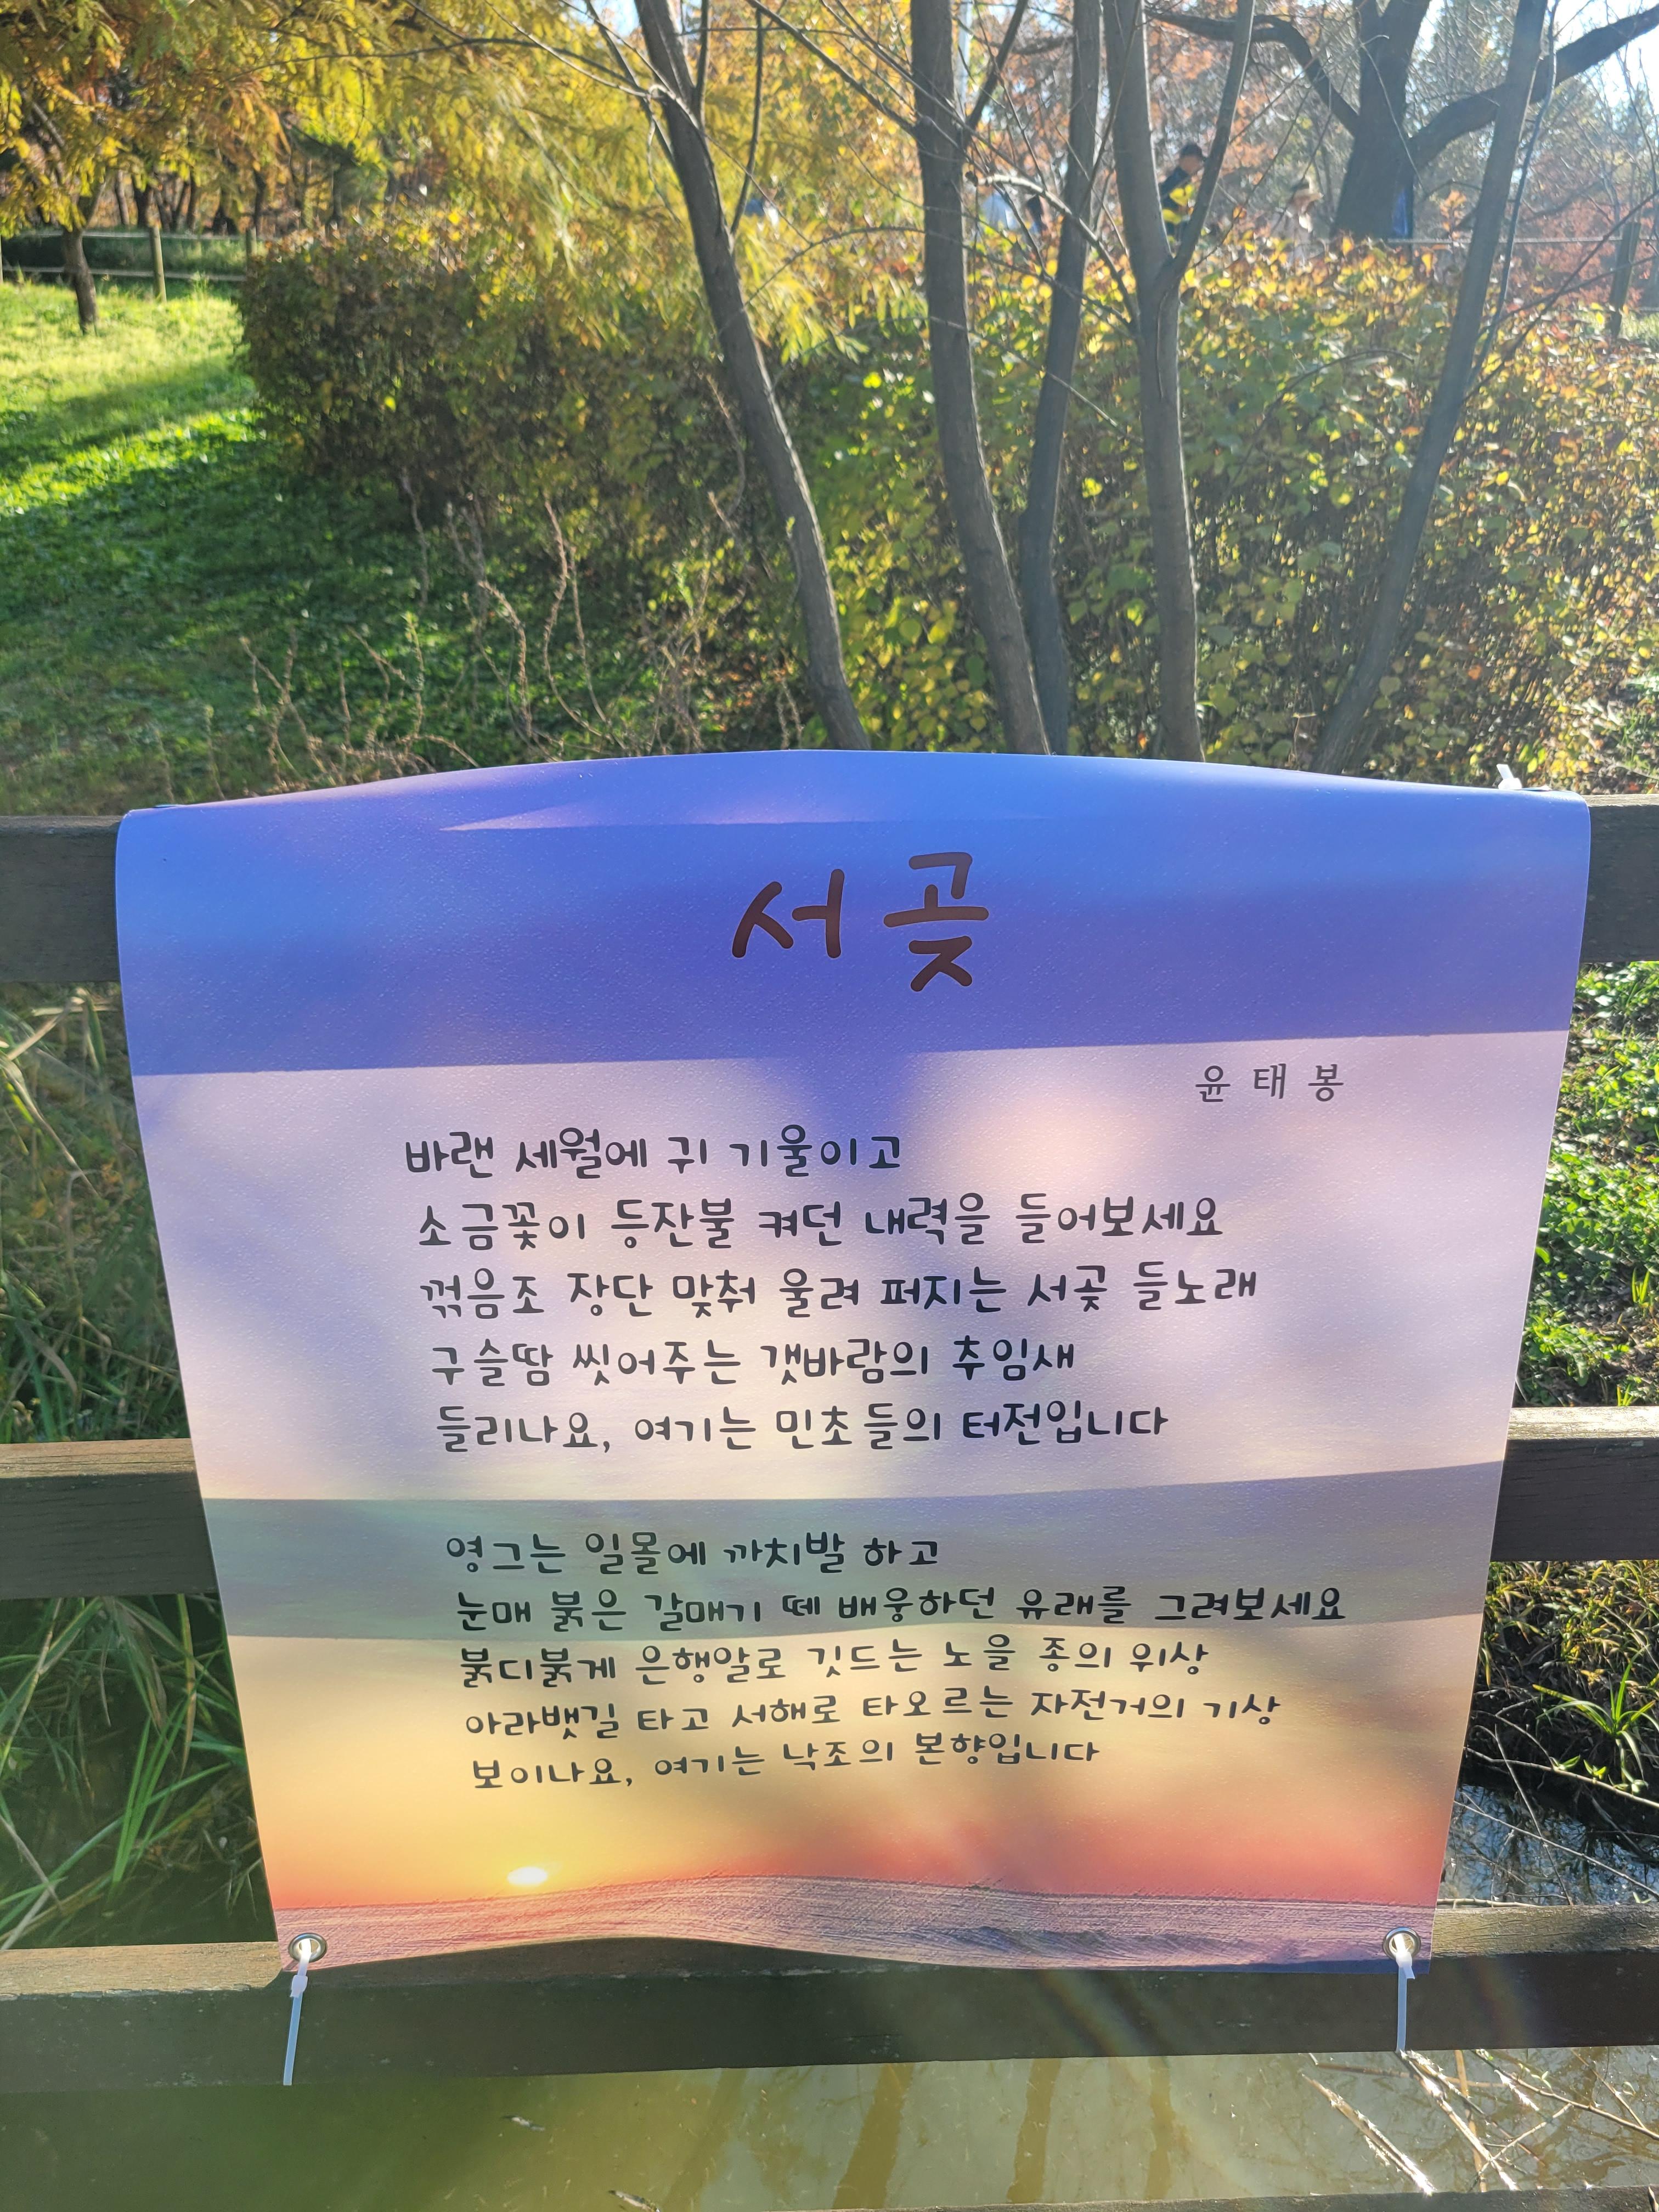 서곶
윤태봉
바랜 세월에 귀 기울이고
소금꽃이 등잔불 켜던 내력을 들어보세요
꺾음조 장단 맞춰 울려 퍼지는 서곶 들노래
구슬땀 씻어주는 갯바람의 추임새
들리나요, 여기는 민초들의 터전입니다
영그는 일몰에 까치발 하고
눈매 붉은 갈매기 떼 배웅하던 유래를 그려보세요
붉디붉게 은행알로 깃드는 노을 종의 위상
아라뱃길 타고 서해로 타오르는 자전거의 기상
보이나요, 여기는 낙조의 본향입니다